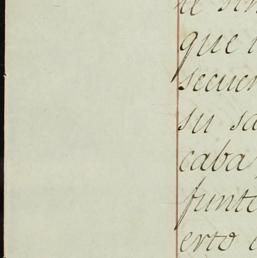 que
secuen
su sa
caba
funto
erto